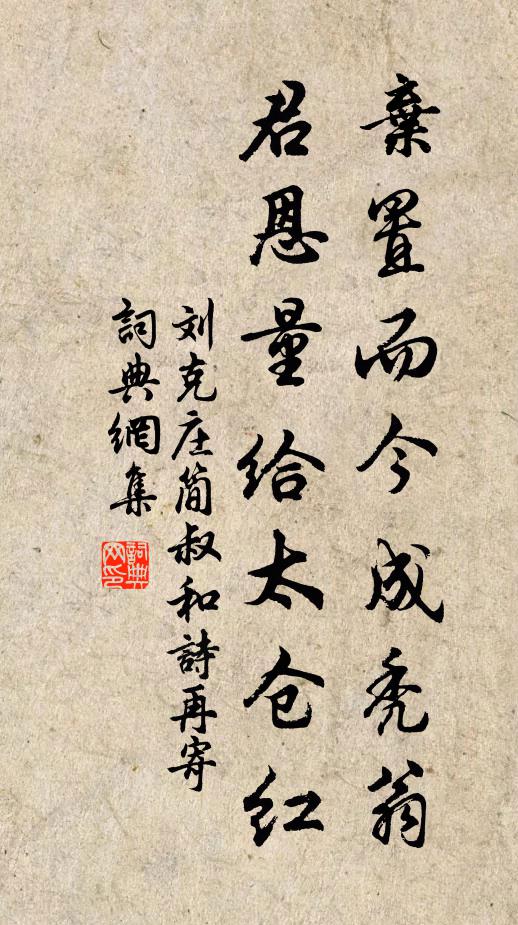 棄置而今成禿翁
君恩量给太仓红
刘克庄简叔和詩再寄
詞典網集
詞典网印